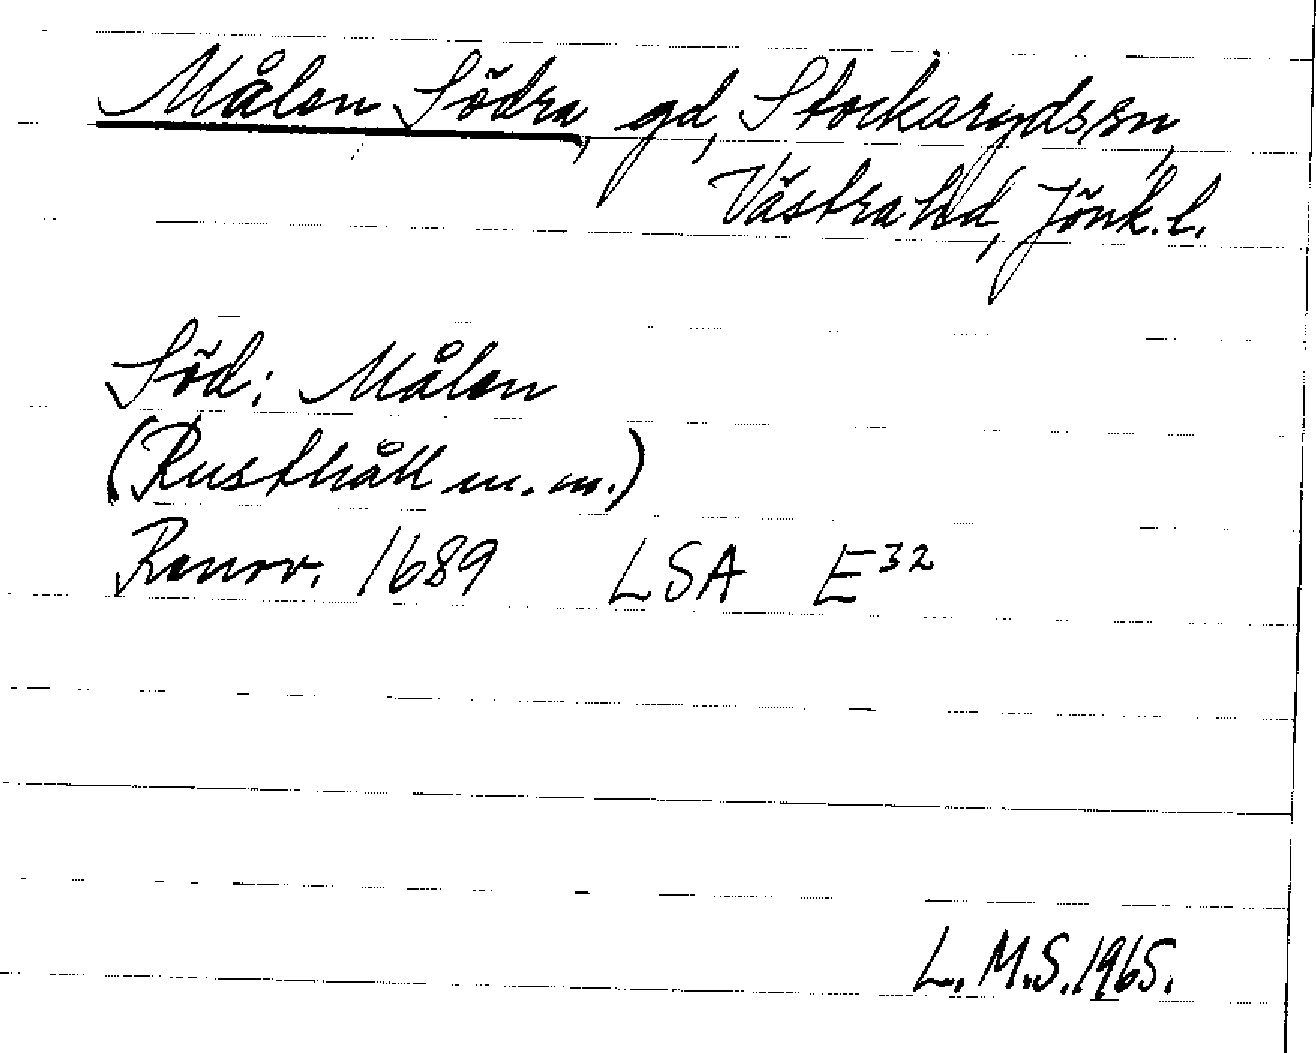 Målen Södra, gd, Stockaryds sn,
Västra hd, Jönk. l.
Söd: Målen
(Rusthåll m.m.)
Renov. 1689 LSA E32
L.M.S. 1965.